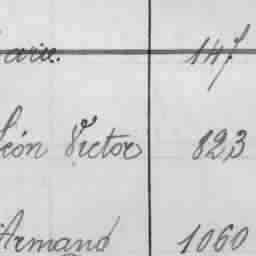 Marie. 147
Léon Victor 823
Armand 1060